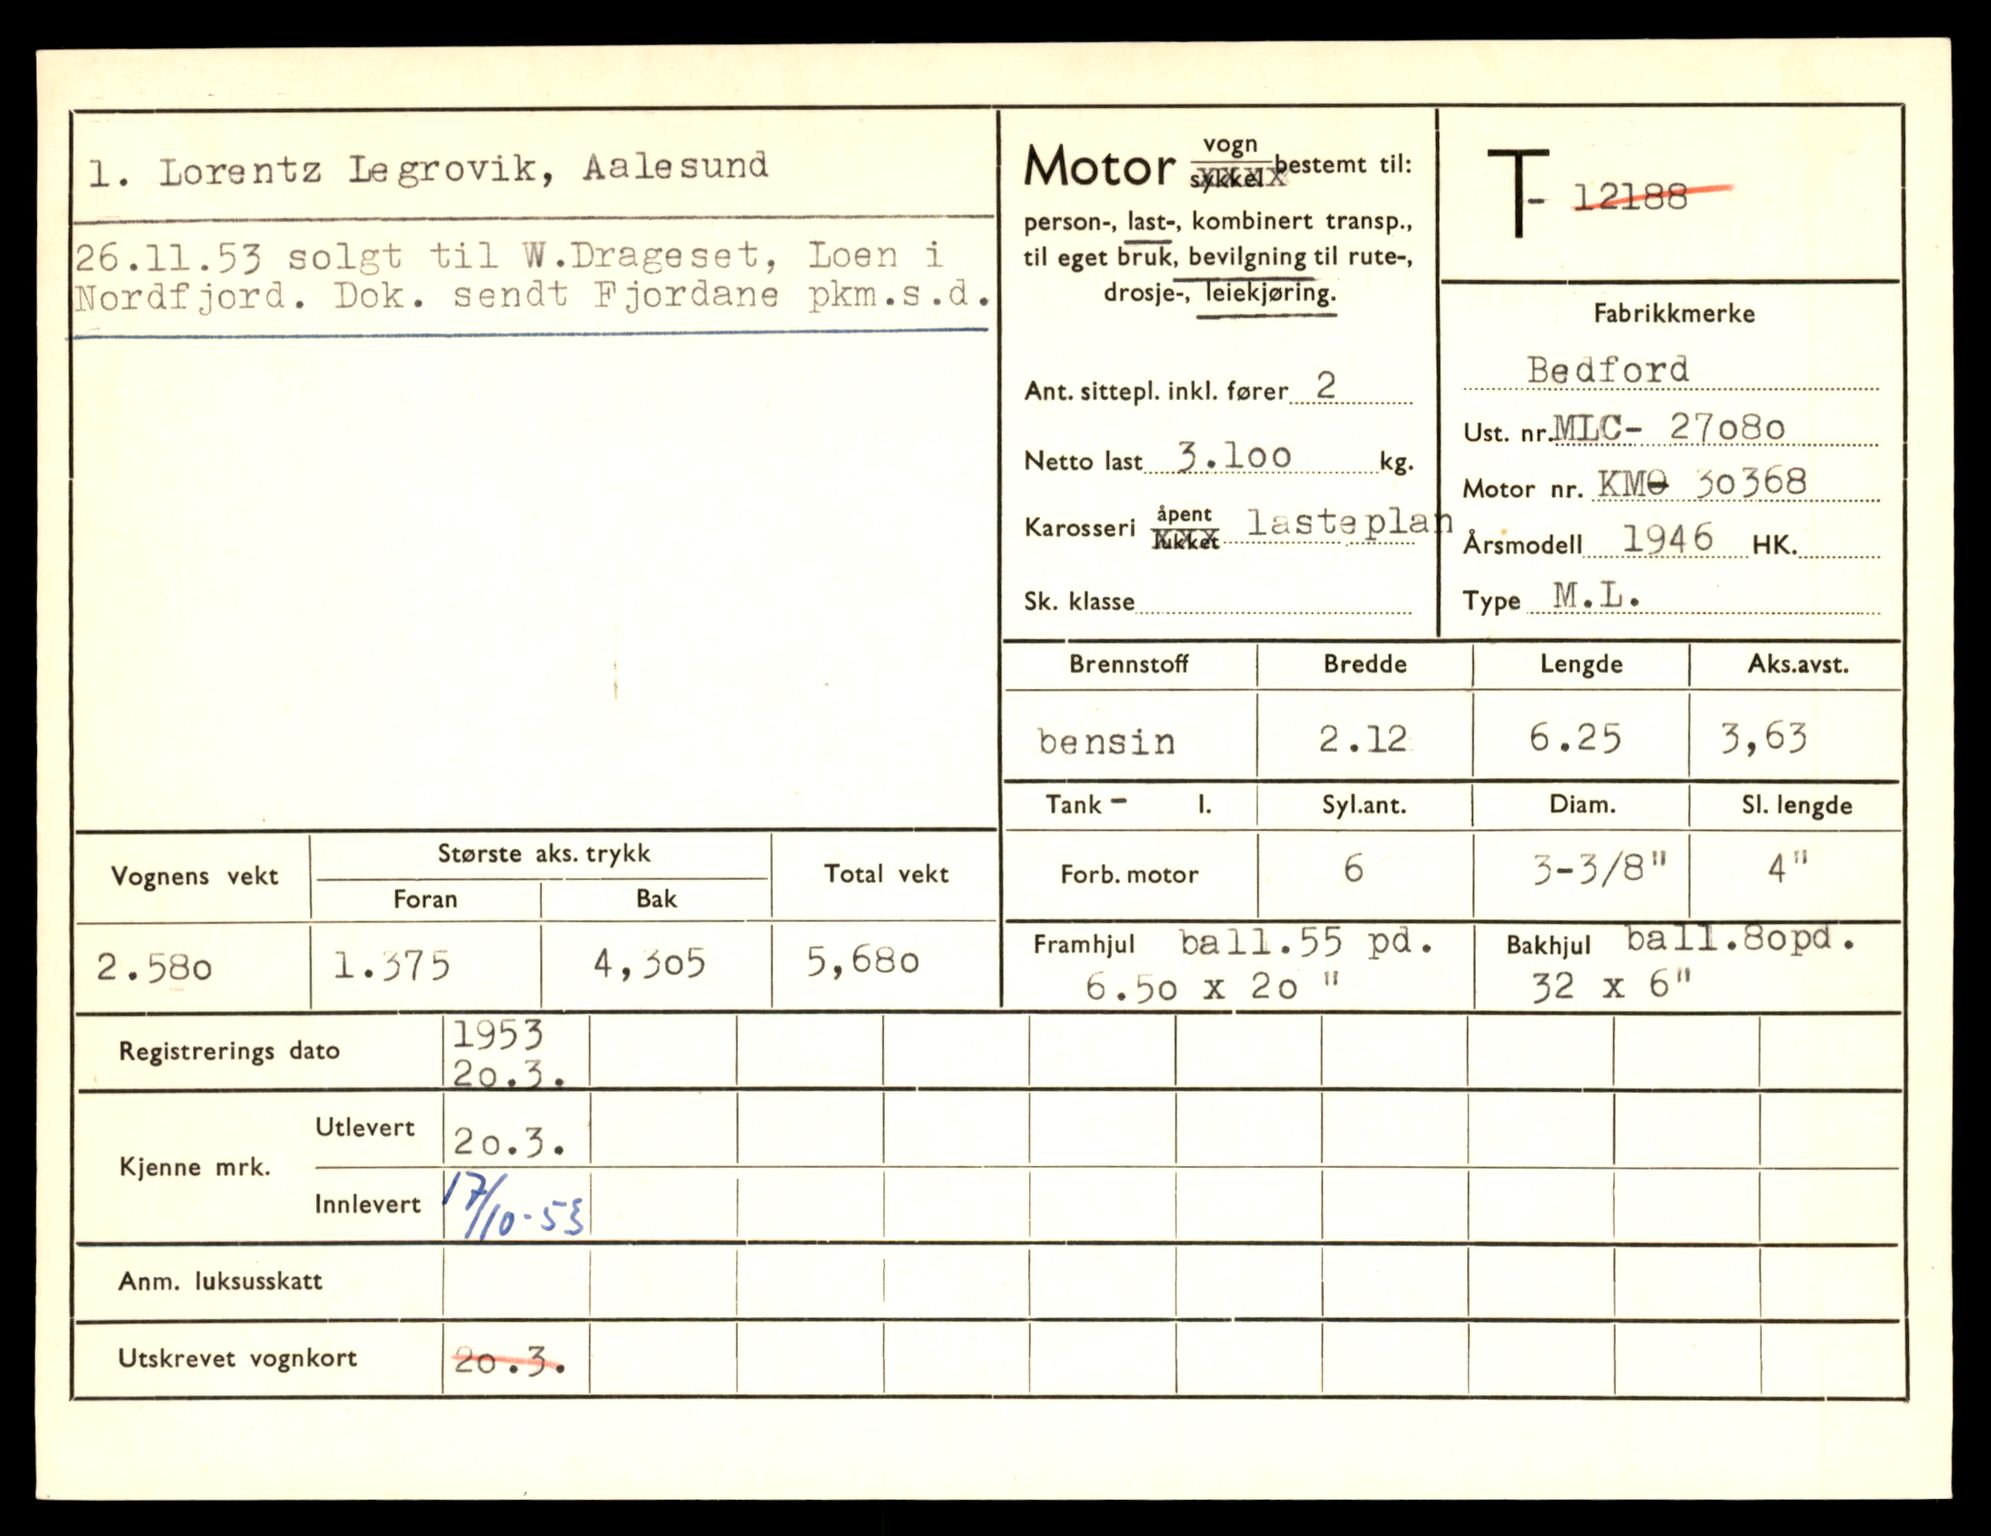 1. Lorentz Legrovik, Aalesund
26.11.53 solgt til W.Drageset, Loen i
Nordfjord. Dok. sendt Fjordane pkm.s.d.
Motor vogn
sykkel bestemt til:
person-, last-, kombinert transp.,
til eget bruk, bevilgning til rute-,
drosje-, leiekjøring.
Ant. sittepl. inkl. fører 2
Netto last 3.100 kg.
Karosseri åpent lasteplan
lukket
Sk. klasse
T- 12188
Fabrikkmerke
Bedford
Ust. nr. MLC- 27080
Motor nr. KMO 30368
Årsmodell 1946 HK.
Type M.L.
Brennstoff Bredde Lengde Aks.avst.
bensin 2.12 6.25 3,63
Tank - l. Syl.ant. Diam. Sl. lengde
Forb. motor 6 3-3/8" 4"
Framhjul ball.55 pd. Bakhjul ball.80pd.
6.50 x 20 " 32 x 6"
Vognens vekt Største aks. trykk Total vekt
Foran Bak
2.580 1.375 4,305 5,680
Registrerings dato 1953
20.3.
Kjenne mrk. Utlevert 20.3.
Innlevert 17/10-53
Anm. luksusskatt
Utskrevet vognkort 20.3.